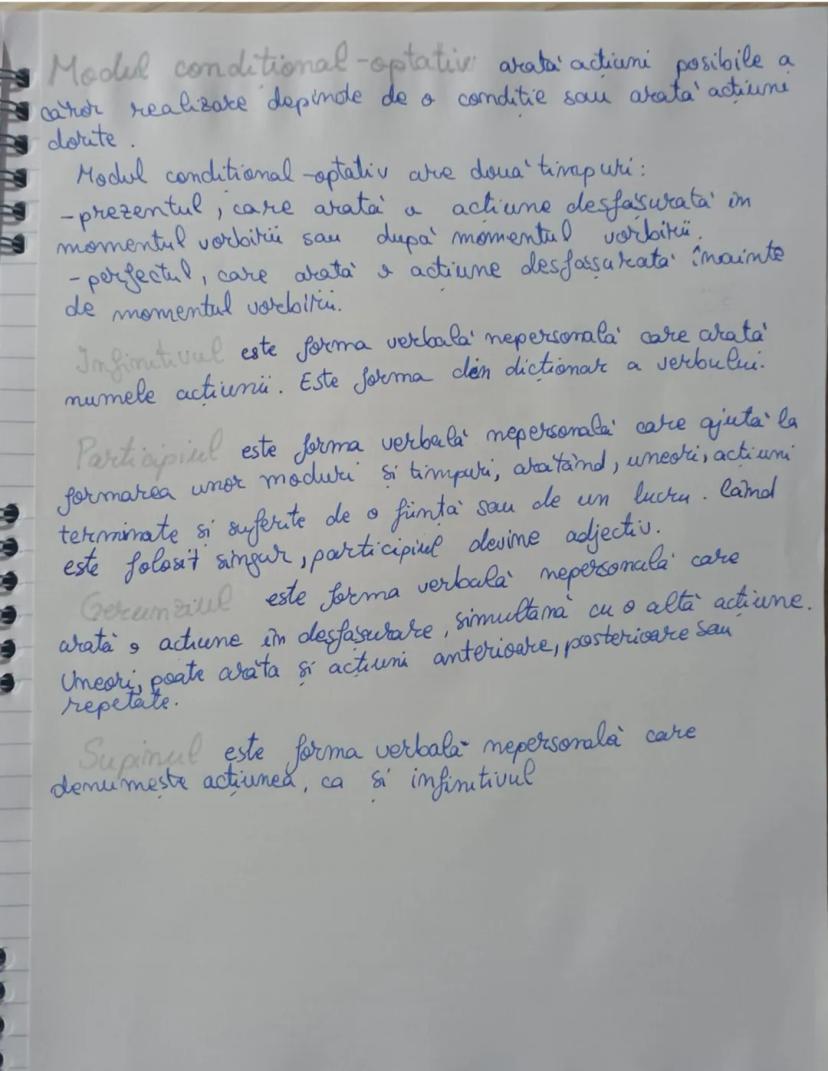 Modul conditional-optativ arată acțiuni posibile a
căror realizare depinde de o condiție sau arată acțiuni
dorite.
Modul conditional-optativ are două timpuri:
-prezentul, care arată o acțiune desfășurată în
momentul vorbirii sau după momentul vorbirii.
-perfectul, care arată o acțiune desfășsurată înainte
de momentul vorbirii.
Infinitivul este forma verbală nepersonală care arată
numele acțiunii. Este forma din dicționar a verbului.
Participiul este forma verbală nepersonală care ajută la
formarea unor moduri și timpuri, arătând, uneori, acțiuni
terminate și suferite de o ființă sau de un lucru. Când
este folosit singur, participiul devine adjectiv.
Gerunziul este forma verbală nepersonală care
arată o acțiune în desfășurare, simultană cu o altă acțiune.
Uneori, poate arăta și acțiuni anterioare, posterioare sau
repetate.
Supinul este forma verbală nepersonală care
denumește acțiunea, ca și infinitivul